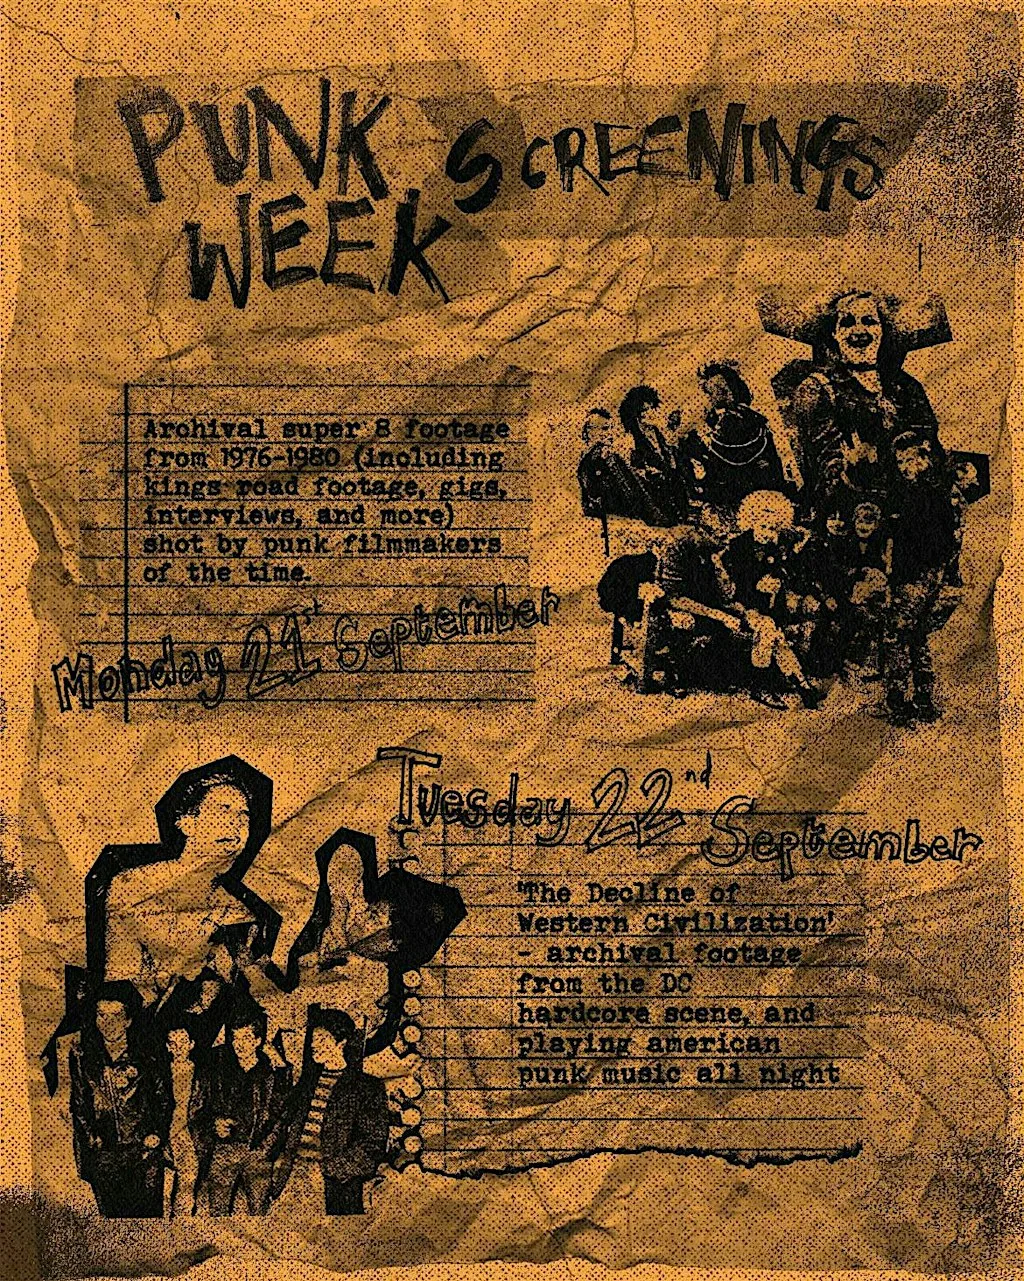 PUNK SCREENINGS
WEEK
Archival super 8 footage
from 1976-1980 (including
kings road footage, gigs,
interviews, and more)
shot by punk filmmakers
of the time.
Monday 21st September
Tuesday 22nd September
'The Decline of
Western Civilization'
- archival footage
from the DC
hardcore scene, and
playing american
punk music all night